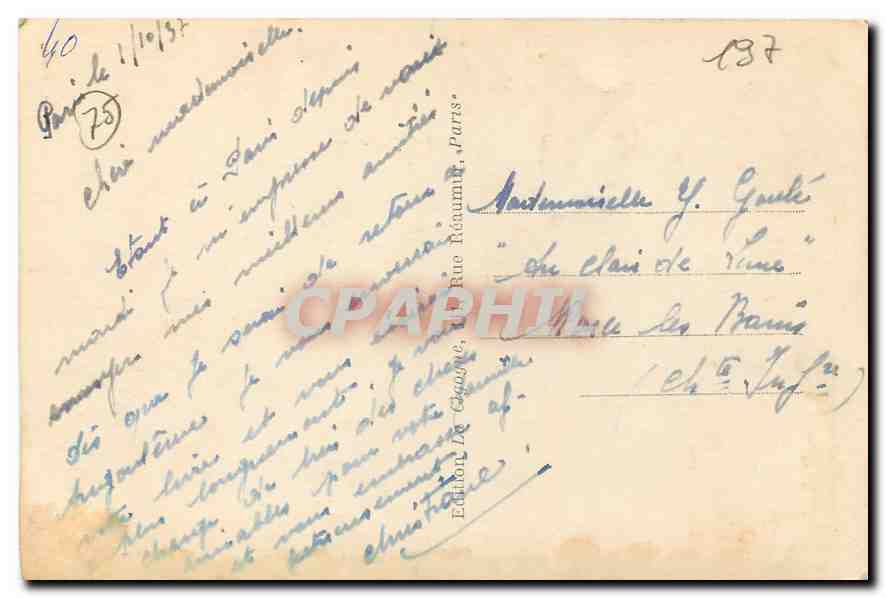 40
Paris le 1/10/37
75
Chère mademoiselle.
Etant à Paris depuis
mardi je m'empresse de vous
envoyer mes meilleures amitiés
dès que je serai de retour à
Angoulême je vous
votre livre et vous
plus longuement. Je vous
charge de des choses
aimables pour votre famille
et vous embrasse af-
fectueusement
Christiane
Edition La Cigogne, Rue Réaumur, Paris
CPAPHIL
197
Mademoiselle Y. Goulé
"Au Clair de Lune"
les Bains
(Chte Infre)